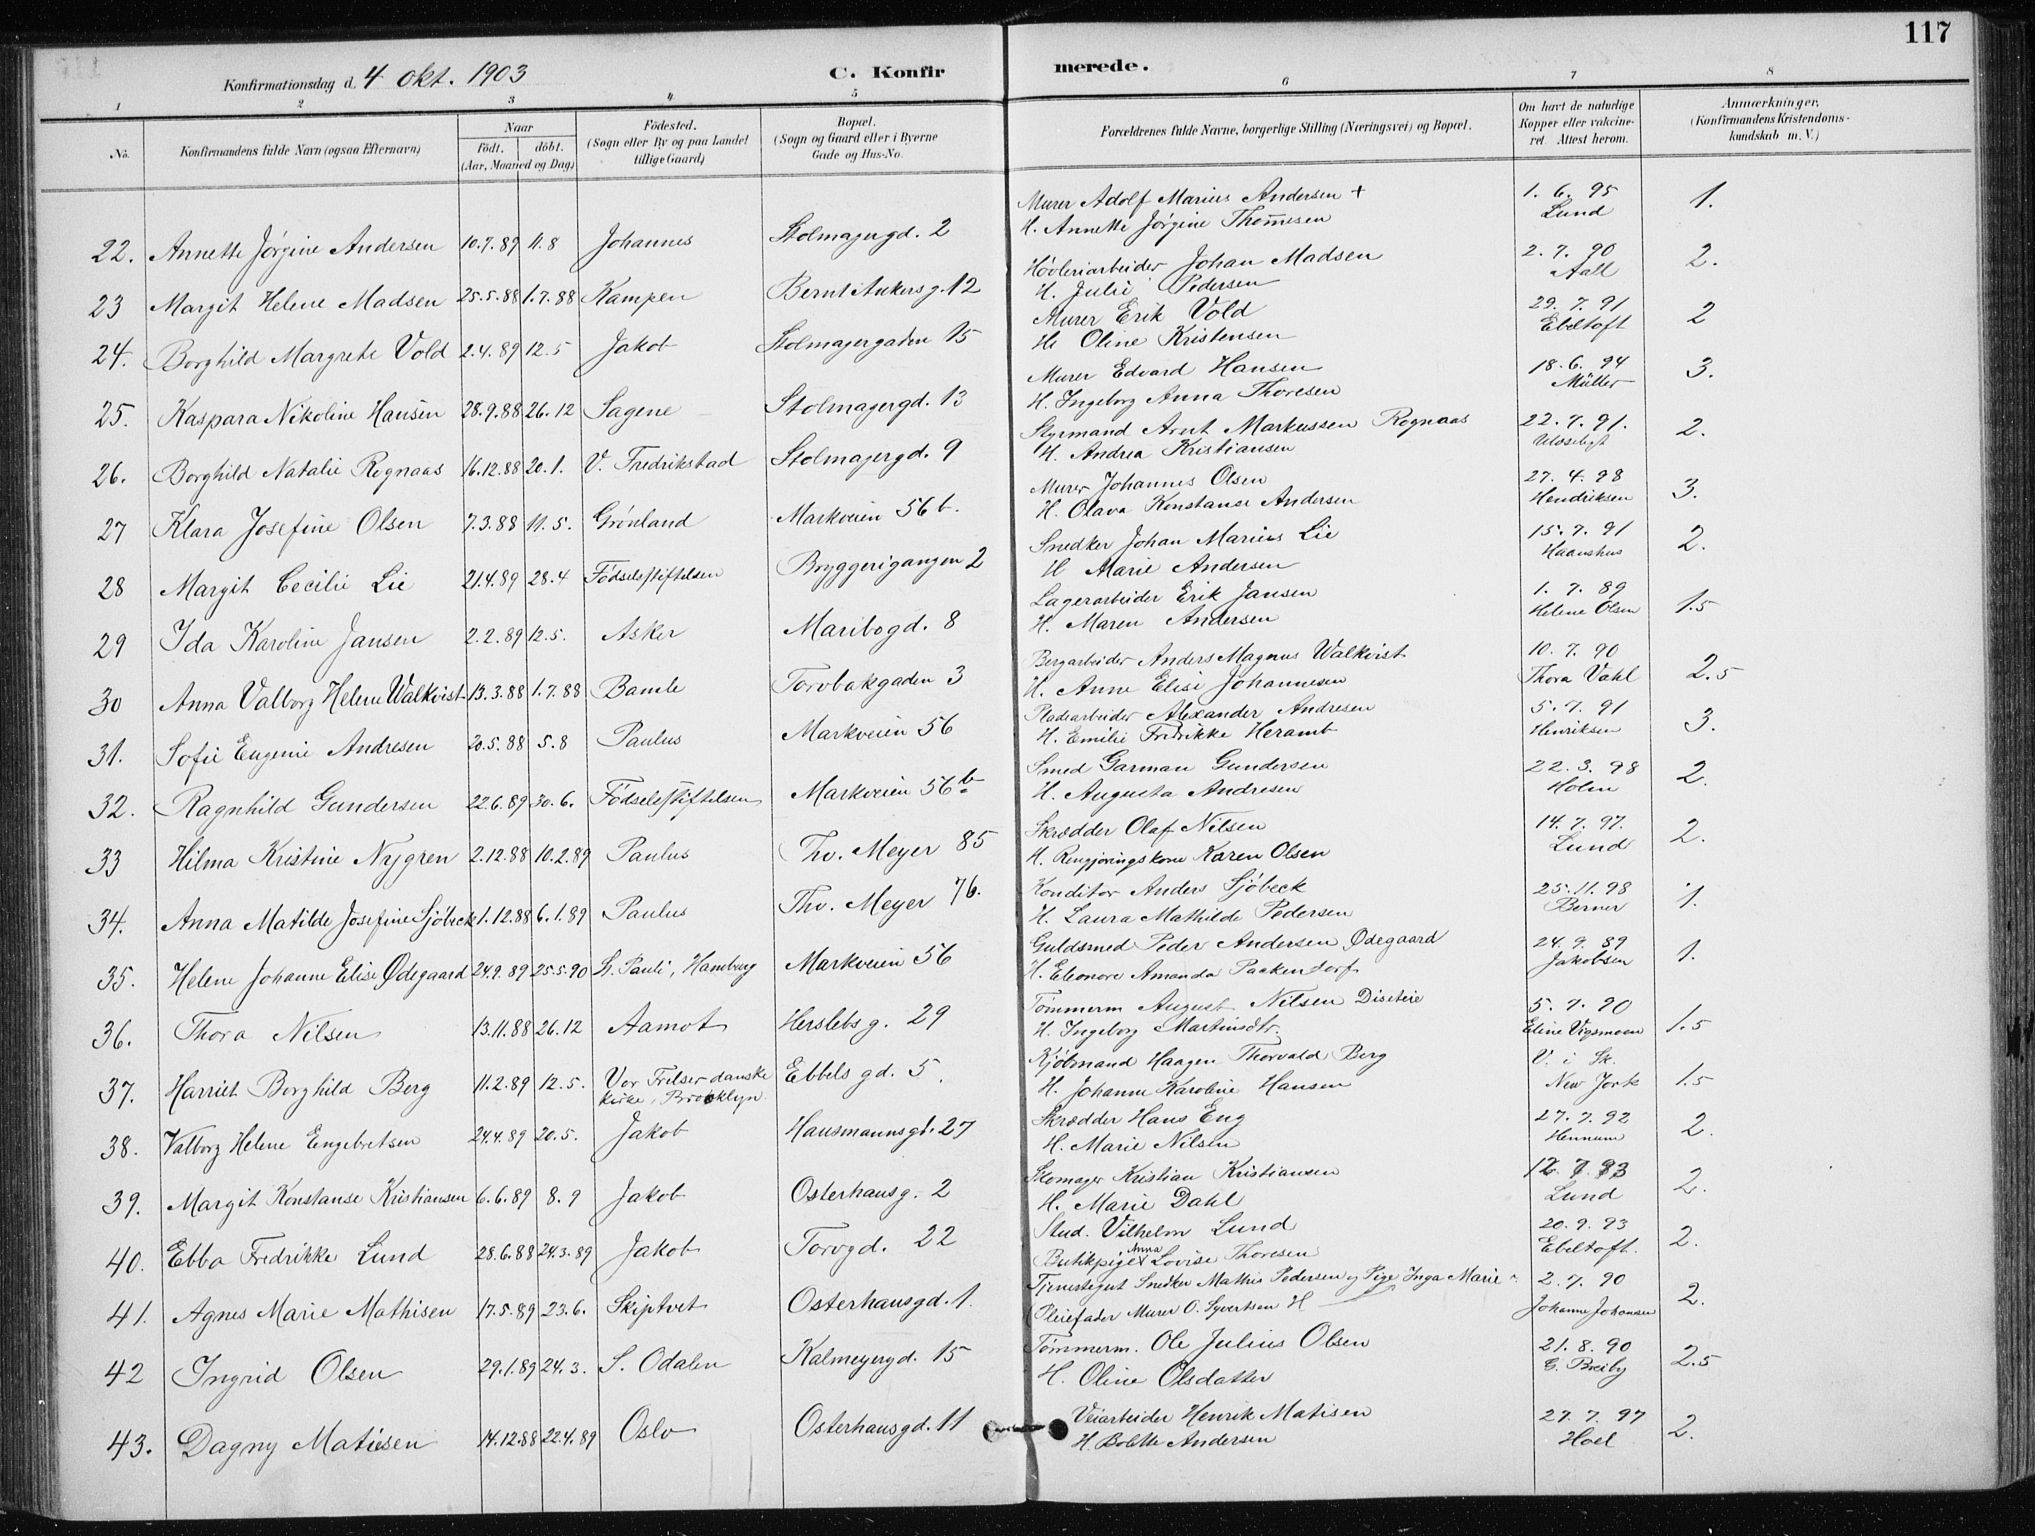 117
Konfirmationsdag d. 4 okt. 1903 C. Konfirmerede.
1 2 3 4 5 6 7 8
No. Konfirmandens fulde Navn (ogsaa Efternavn) Naar født. døbt. (Aar, Maaned og Dag) Fødested. (Sogn eller By og paa Landet tillige Gaard) Bopæl. (Sogn og Gaard eller i Byerne Gade og Hus-No. Forældrenes fulde Navne, borgerlige Stilling (Næringsvei) og Bopæl. Om havt de naturlige Kopper eller vakcineret. Attest herom. Anmærkninger, (Konfirmandens Kristendomskundskab m. V.)
22. Annette Jørgine Andersen 10.7.89 11.8 Johannes Stolmagergd. 2 Murer Adolf Marius Andersen + 1. 6. 95 1.
H. Annette Jørgine Thomesen Lund
23 Margit Helene Madsen 25.5.88 1.7.88 Kampen Bernt Ankersg. 12 Høvleriarbeider Johan Madsen 2. 7. 90 2.
H. Julie Pedersen Aall
24. Borghild Margrete Vold 2.4.89 12.5 Jakob Stolmagergaden 15 Murer Erik Vold 29. 7. 91 2
H. Oline Kristensen Ebeltoft
25. Kaspara Nikoline Hansen 28.9.88 26.12 Sagene Stolmagergd. 13 Murer Edvard Hansen 18. 6. 94 3.
H. Ingeborg Anna Thoresen Müller
26. Borghild Natalie Rognaas 16.12.88 20.1. V. Fredrikstad Stolmagergd. 9 Styrmand Arnt Markussen Rognaas 22. 7. 91. 2.
H. Andrea Kristiansen Ulæseligt
27 Klara Josefine Olsen 7.3.88 11.5. Grønland Markveien 56 b. Murer Johannes Olsen 27. 4. 98 3.
H. Olava Konstanse Andersen Hendriksen
28 Margit Cecilie Lie 21.4.89 28.4 Fødselsstiftelsen Bryggerigangen 2 Snedker Johan Marius Lie 15. 7. 91 2.
H Marie Andersen Haanshus
29 Ida Karoline Jansen 2.2.89 12.5. Asker Maribogd. 8 Lagerarbeider Erik Jansen 1. 7. 89 1.5
H. Maren Andersen Helene Olsen
30 Anna Valborg Helene Walkvist 13.3.88 1.7.88 Bamle Torvbakgaden 3 Bergarbeider Anders Magnus Walkvist 10. 7. 90 2.5
H. Anne Elise Johannesen Thora Vahl
31. Sofie Eugenie Andresen 20.5.88 5.8 Paulus Markveien 56 Pladearbeider Alexander Andresen 5. 7. 91 3.
H. Emilie Fredrikke Heramb Henriksen
32. Ragnhild Gundersen 22.6.89 30.6. Fødselsstiftelsen Markveien 56 b Smed Garman Gundersen 22. 3. 98 2.
H. Augusta Andresen Holm
33 Hilma Kristine Nygren 2.12.88 10.2.89 Paulus Thv. Meyer 85 Skrædder Olaf Nilsen 14. 7. 97. 2.
H. Rengjøringskone Karen Olsen Lund
34. Anna Matilde Josefine Sjöbeck 1.12.88 6.1.89 Paulus Thv. Meyer 76. Konditor Anders Sjöbeck 25. 11. 98 1.
H. Laura Mathilde Pedersen Berner
35. Helene Johanne Elise Ødegaard 24.9.89 25.5.90 St. Pauli, Hamburg Markveien 56 Guldsmed Peder Andersen Ødegaard 24. 9. 89 1.
H. Eleonore Amanda Packendorf Jakobsen
36. Thora Nilsen 13.11.88 26.12 Aamot Herslebsg. 29 Tømmerm August Nilsen Diseteie 5. 7. 90 1.5
H. Ingeborg Martinsdtr. Eline Vigsmoen
37. Harriet Borghild Berg 11.2.89 12.5. Vor Frelser danske kirke, Brooklyn Ebbelsgd. 5. Kjøbmand Haagen Thorvald Berg V. i Sk. 1.5
H. Johanne Karoline Hansen New Jork
38. Valborg Helene Engebretsen 24.4.89 20.5. Jakob Hausmannsgd. 27 Skrædder Hans Eng 27. 7. 92 2.
H. Marie Nilsen Hennum
39. Margit Konstanse Kristiansen 6.6.89 8.9 Jakob Osterhausg. 2 Skomager Kristian Kristiansen 7. 93 2.
H. Marie Dahl Lund
40. Ebba Fredrikke Lund 28.6.88 24.3.89 Jakob Torvgd. 22 Stud. Vilhelm Lund 20. 9. 93 2.
Butikpige Anna Lovise Thoresen Ebeltoft.
41. Agnes Marie Mathisen 17.5.89 23.6. Skiptvet Osterhausgd. 1. Tjenestegut Snedker Mathis Pedersen og Pige Inga Marie 2. 7. 90 2.
(Pleiefader Murer O. Syvertsen H Johanne Johansen
42 Ingrid Olsen 29.1.89 24.3. S. Odalen Kalmeyergd. 15 Tømmerm. Ole Julius Olsen 21. 8. 90 2.5
H. Oline Olsdatter G. Breiby
43. Dagny Matisen 14.12.88 22.4.89 Oslo Osterhausgd. 11 Veiarbeider Henrik Matisen 27. 7. 97 2.
H. Bolette Andersen Hoel